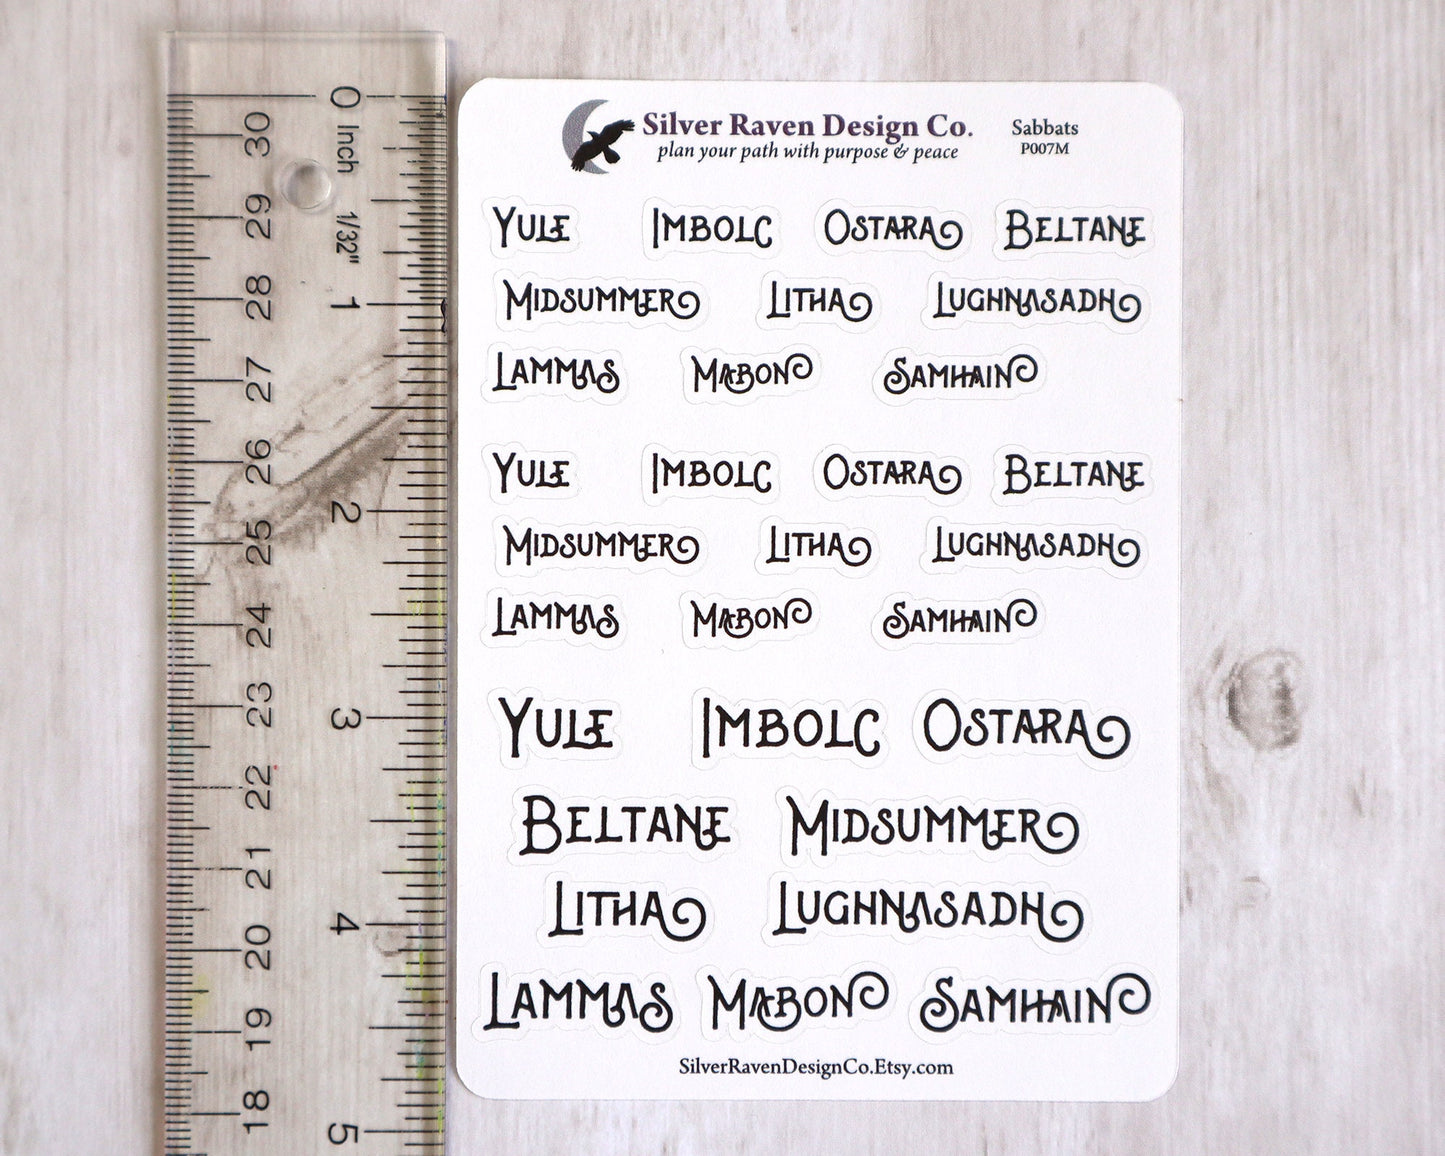 0 Inch 1/32" 1 2 3 4 5
30 29 28 27 26 25 24 23 22 21 20 19 18
Silver Raven Design Co.
plan your path with purpose & peace
Sabbats
P007M
YULE IMBOLC OSTARA BELTANE
MIDSUMMER LITHA LUGHNASADH
LAMMAS MABON SAMHAIN
YULE IMBOLC OSTARA BELTANE
MIDSUMMER LITHA LUGHNASADH
LAMMAS MABON SAMHAIN
YULE IMBOLC OSTARA
BELTANE MIDSUMMER
LITHA LUGHNASADH
LAMMAS MABON SAMHAIN
SilverRavenDesignCo.Etsy.com